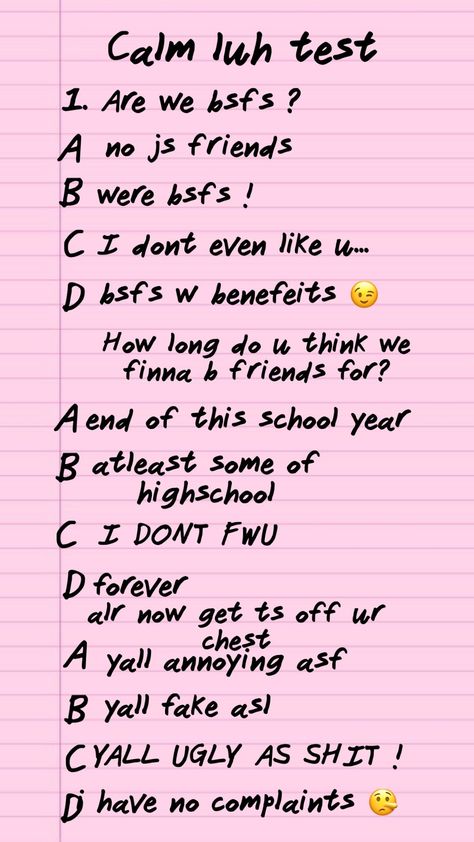 Calm luh test
1. Are we bsfs ?
A no js friends
B were bsfs !
C I dont even like u...
D bsfs w benefeits 😉
How long do u think we
finna b friends for?
A end of this school year
B atleast some of
highschool
C I DONT FWU
D forever
alr now get ts off ur
chest
A yall annoying asf
B yall fake asl
C YALL UGLY AS SHIT !
D i have no complaints 🤥